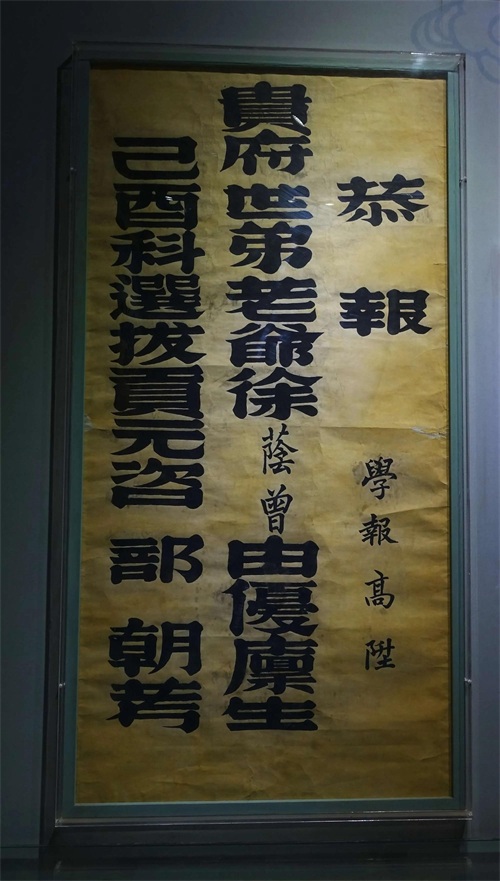 恭報
學報高陞
貴府世弟老爺徐蔭曾由優廩生
己酉科選拔貢元咨部朝考